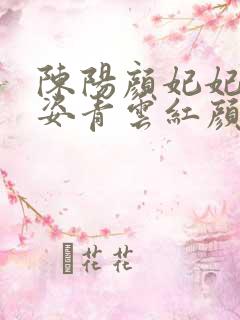 陳陽顏妃妃
姿青雲紅顏
花花